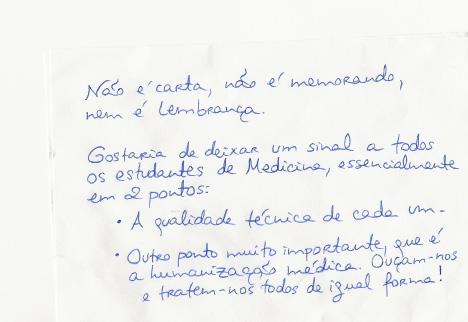 Não é carta, não é memorando,
nem é lembrança.
Gostaria de deixar um sinal a todos
os estudantes de Medicina, essencialmente
em 2 pontos:
• A qualidade técnica de cada um.
• Outro ponto muito importante, que é
a humanização médica. Ouçam-nos
e tratem-nos todos de igual forma!